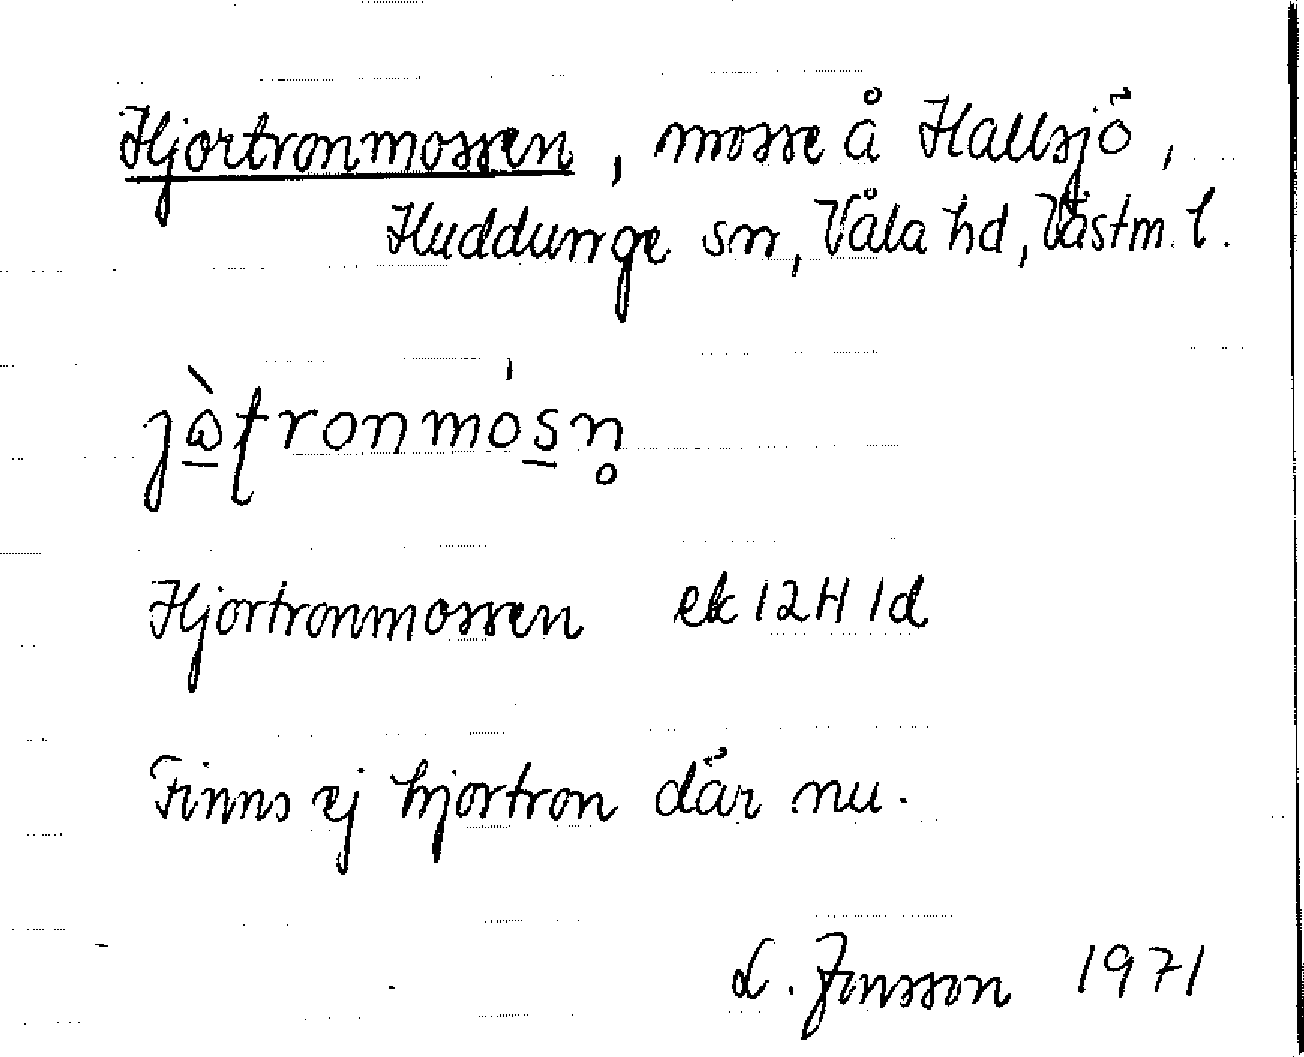 Hjortronmossen, mosse å Hallsjö,
Huddunge sn, Våla hd, Västm. l.
jὼʈronmósn̥
Hjortronmossen ek 12H 1d
Finns ej hjortron där nu.
L. Jonsson 1971